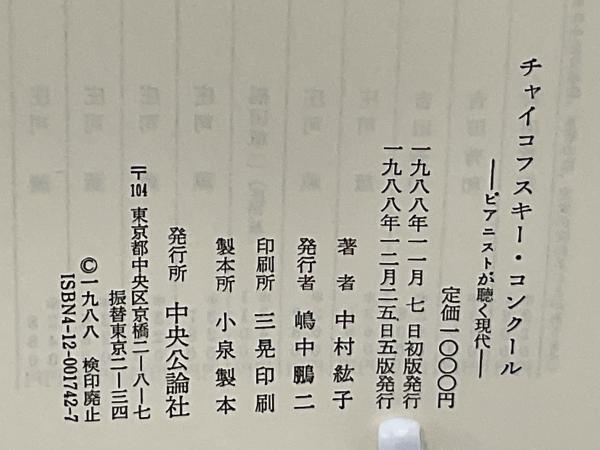 チャイコフスキー・コンクール
―ピアニストが聴く現代―
定価一〇〇〇円
一九八八年一一月 七 日初版発行
一九八八年一二月二五日五版発行
著 者 中村紘子
発行者 嶋中鵬二
印刷所 三晃印刷
製本所 小泉製本
発行所 中央公論社
〒104 東京都中央区京橋二―八―七
振替東京二―三四
©一九八八 検印廃止
ISBN4-12-001742-7